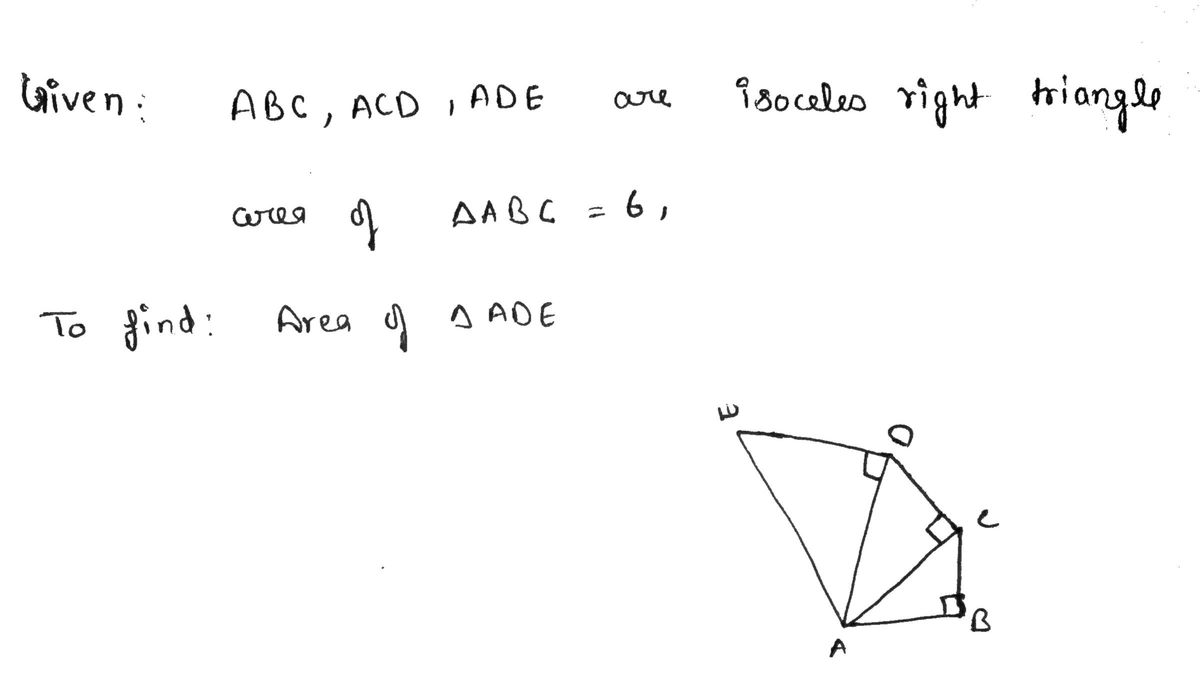 Given: ABC, ACD, ADE are isoceles right triangle
area of ΔABC = 6,
To find: Area of Δ ADE
E
D
C
B
A